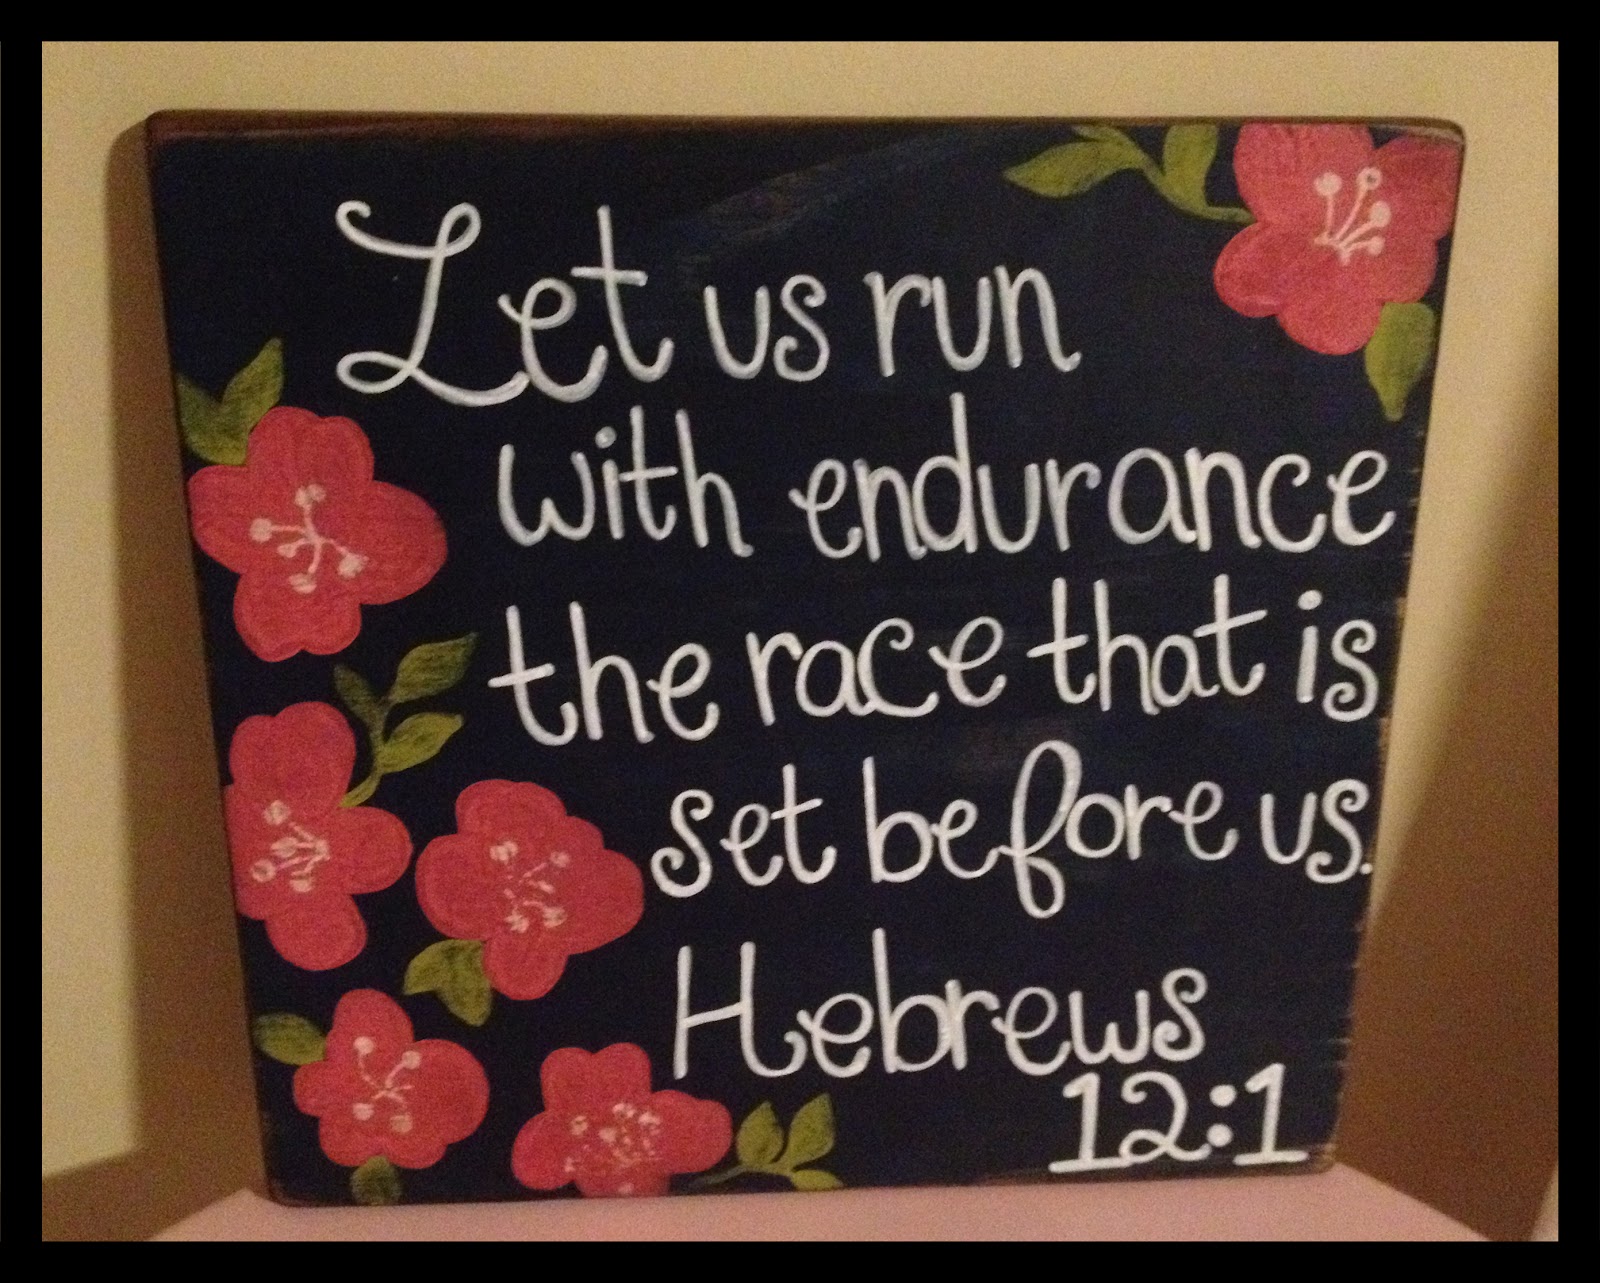 Let us run
with endurance
the race that is
set before us.
Hebrews
12:1